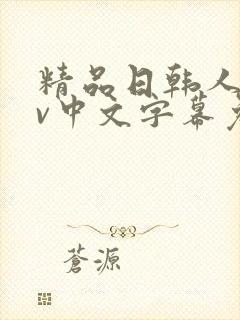 精品日韩人
v中文字幕
蒼源